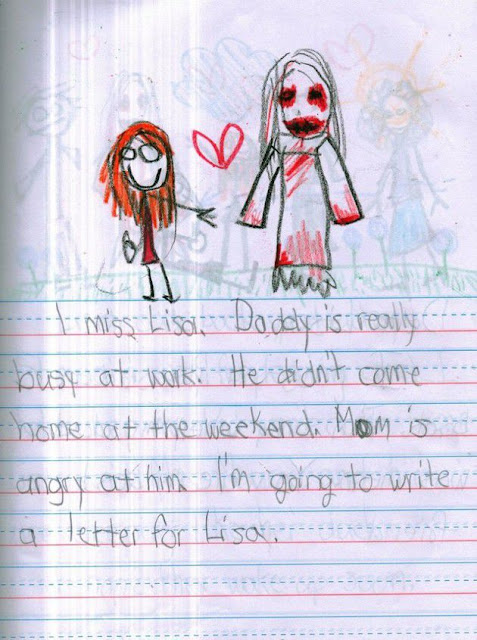 I miss Lisa. Daddy is really
busy at work. He didn't come
home at the weekend. Mom is
angry at him. I'm going to write
a letter for Lisa.